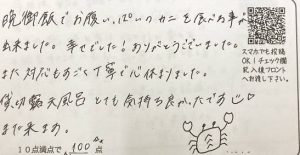 晩御飯でお腹いっぱいのカニを食べる事が
出来ました。幸せでした!ありがとうございました。
また対応もすごく丁寧で心休まりました。
貸切露天風呂とても気持ち良かったです♡
また来ます。
10点満点で 100 点
スマホでも投稿
OK!チェック欄
記入後フロント
へお渡し下さい。